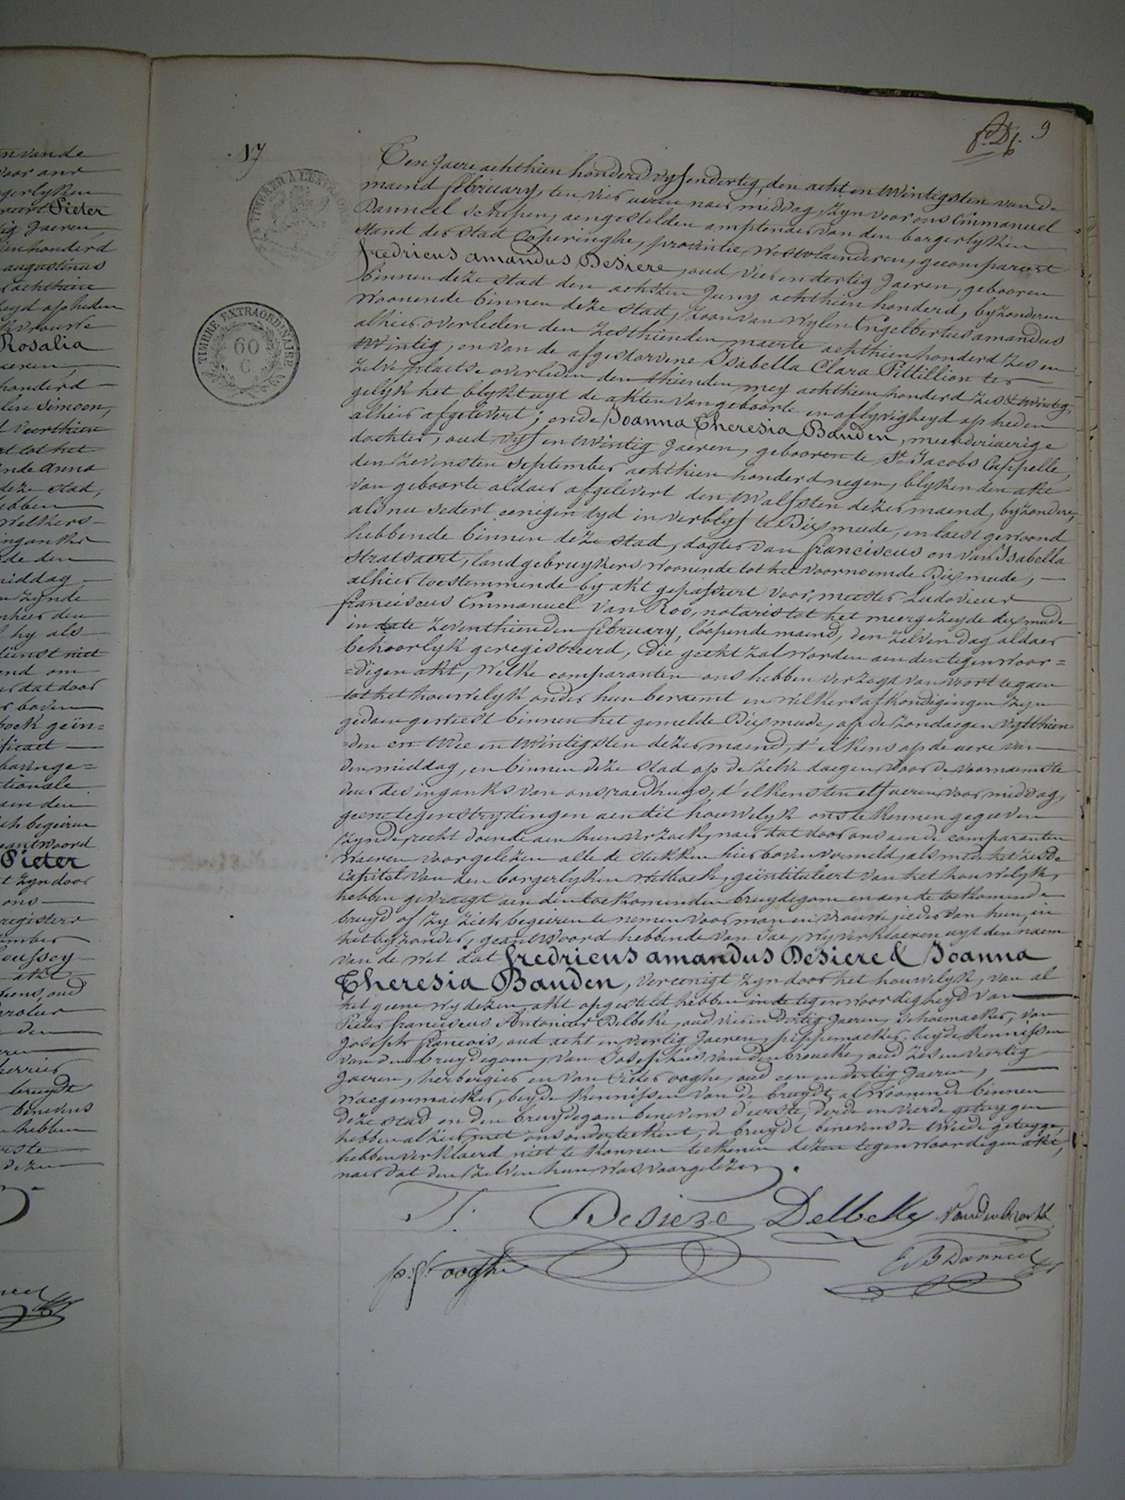 nvande
voor ons
gerlyken
Pieter
Jaeren,
ienhonderd
augustinus
Rosalia
honderd
Simoen,
tot het
inde anna
deze stad,
ebben
Welkers
de den
middag
zynde
hy als
dat door
boven
ficaet
Pieter
t zyn door
ons
registers
bruydt
benevens
hebben
dezen
N 17
9
TIMBRER A L'EXTRAORD
TIMBRE EXTRAORDINAIRE
60
C
Een Jaere achthien honderd vyf en dertig, den acht en twintigsten van de
maend february, ten vier uren naer middag, zyn voor ons Emmanuel
Danneel schepen, aengestelden amptenaer van den borgerlyken
stand der stad Poperinghe, provintie Westvlaenderen, gecompareert
fredricus amandus Desiere, oud vier en dertig Jaeren, gebooren
binnen deze stad den achsten Juny achthien honderd, byzonderen
woonende binnen deze stad, zoon van wylen Engelbertus amandus
alhier overleden den zesthienden maerte achthien honderd zes en
twintig, en van de afgestorvene Isabella Clara Pittillion ter
zelve plaetse overleden den thienden mey achthien honderd zes & twintig,
gelyk het blykt uyt de akten van geboorte en aflyvigheyd op heden
alhier afgelevert; ende Joanna Theresia Bauden, meerderjaerige
dochter, oud vyf en twintig Jaeren, gebooren te St Jacobs Cappelle,
den zevensten september achthien honderd negen, blyken den akte
van geboorte aldaer afgelevert den twalfsten dezer maend, byzondere,
als nu sedert eenigen tyd in verblyf te Dixmude, en laest gewoond
hebbende binnen deze stad, dogter van franciscus en van Isabella
Straetsaert, landgebruykers woonende tot het voornoemde Dixmude,
alhier toestemmende by akt gepasseert voor meester Ludovicus
franciscus Emmanuel Van Roo, notaris tot het meergezeyde dixmude
in date zeventhienden february, loopende maend, den zelven dag aldaer
behoorlyk geregistreerd, die gehegt zal worden aen den tegenwoor=
=digen akt, Welke comparanten ons hebben verzogt van voort te gaen
tot het houwelyk onder hun beraemt en welkers afkondigingen zyn
gedaen geweest binnen het gemelde Dixmude, op de zondagen vyfthien-
den en twee en twintigsten dezer maend, t'elkens op de uere van
den middag, en binnen deze stad op de zelve daegen voor de voornaemste
deur des inganks van ons raedhuys, t'elkens ten elf ueren voor middag,
geene tegenstrydingen aen dit houwelyk ons te kennen gegeven
zynde, recht doende aen hun verzoek, naer dat door ons aen de comparanten
waeren voorgelezen alle de stukken hier boven vermeld, als mede het zesde
Capitel van den borgerlyken wetboek, geintituleert van het houwelyk,
hebben gevraegt aen den toekomenden bruydegom en aen de toekomende
bruyd of zy zich begeiren te nemen voor man en vrouwe, ieder van hun, in
het byzonder, geantwoord hebbende van Jae, wy verklaeren uyt den naem
van de wet dat fredricus amandus Desiere & Joanna
Theresia Bauden, vereenigt zyn door het houwelyk, van al
het geene wy dezen akt opgestelt hebben in de tegenwoordigheyd van
Pieter franciscus Antonius Delbeke, oud vier en dertig Jaeren, schoenmaeker, van
Joseph francois, oud acht en veertig Jaeren, pypemaeker, beyde kennissen
van den bruydegom, van Josephus van den broucke, oud zes en veertig
Jaeren, herbergier en van Pieter ooghe, oud een en dertig Jaeren,
waegenmaeker, beyde kennissen van de bruydt, al woonende binnen
deze stad en den bruydegom benevens d'eerste, derde en vierde getuygen
hebben alhier met ons onderteekent, de bruydt benevens de tweede getuyge
hebben verklaerd niet te konnen teekenen dezen tegenwoordigen akt,
naer dat den zelven hun was voorgelezen.
F. Desieze Delbeke Vandenbroucke
p: f: ooghe
E. B Danneel